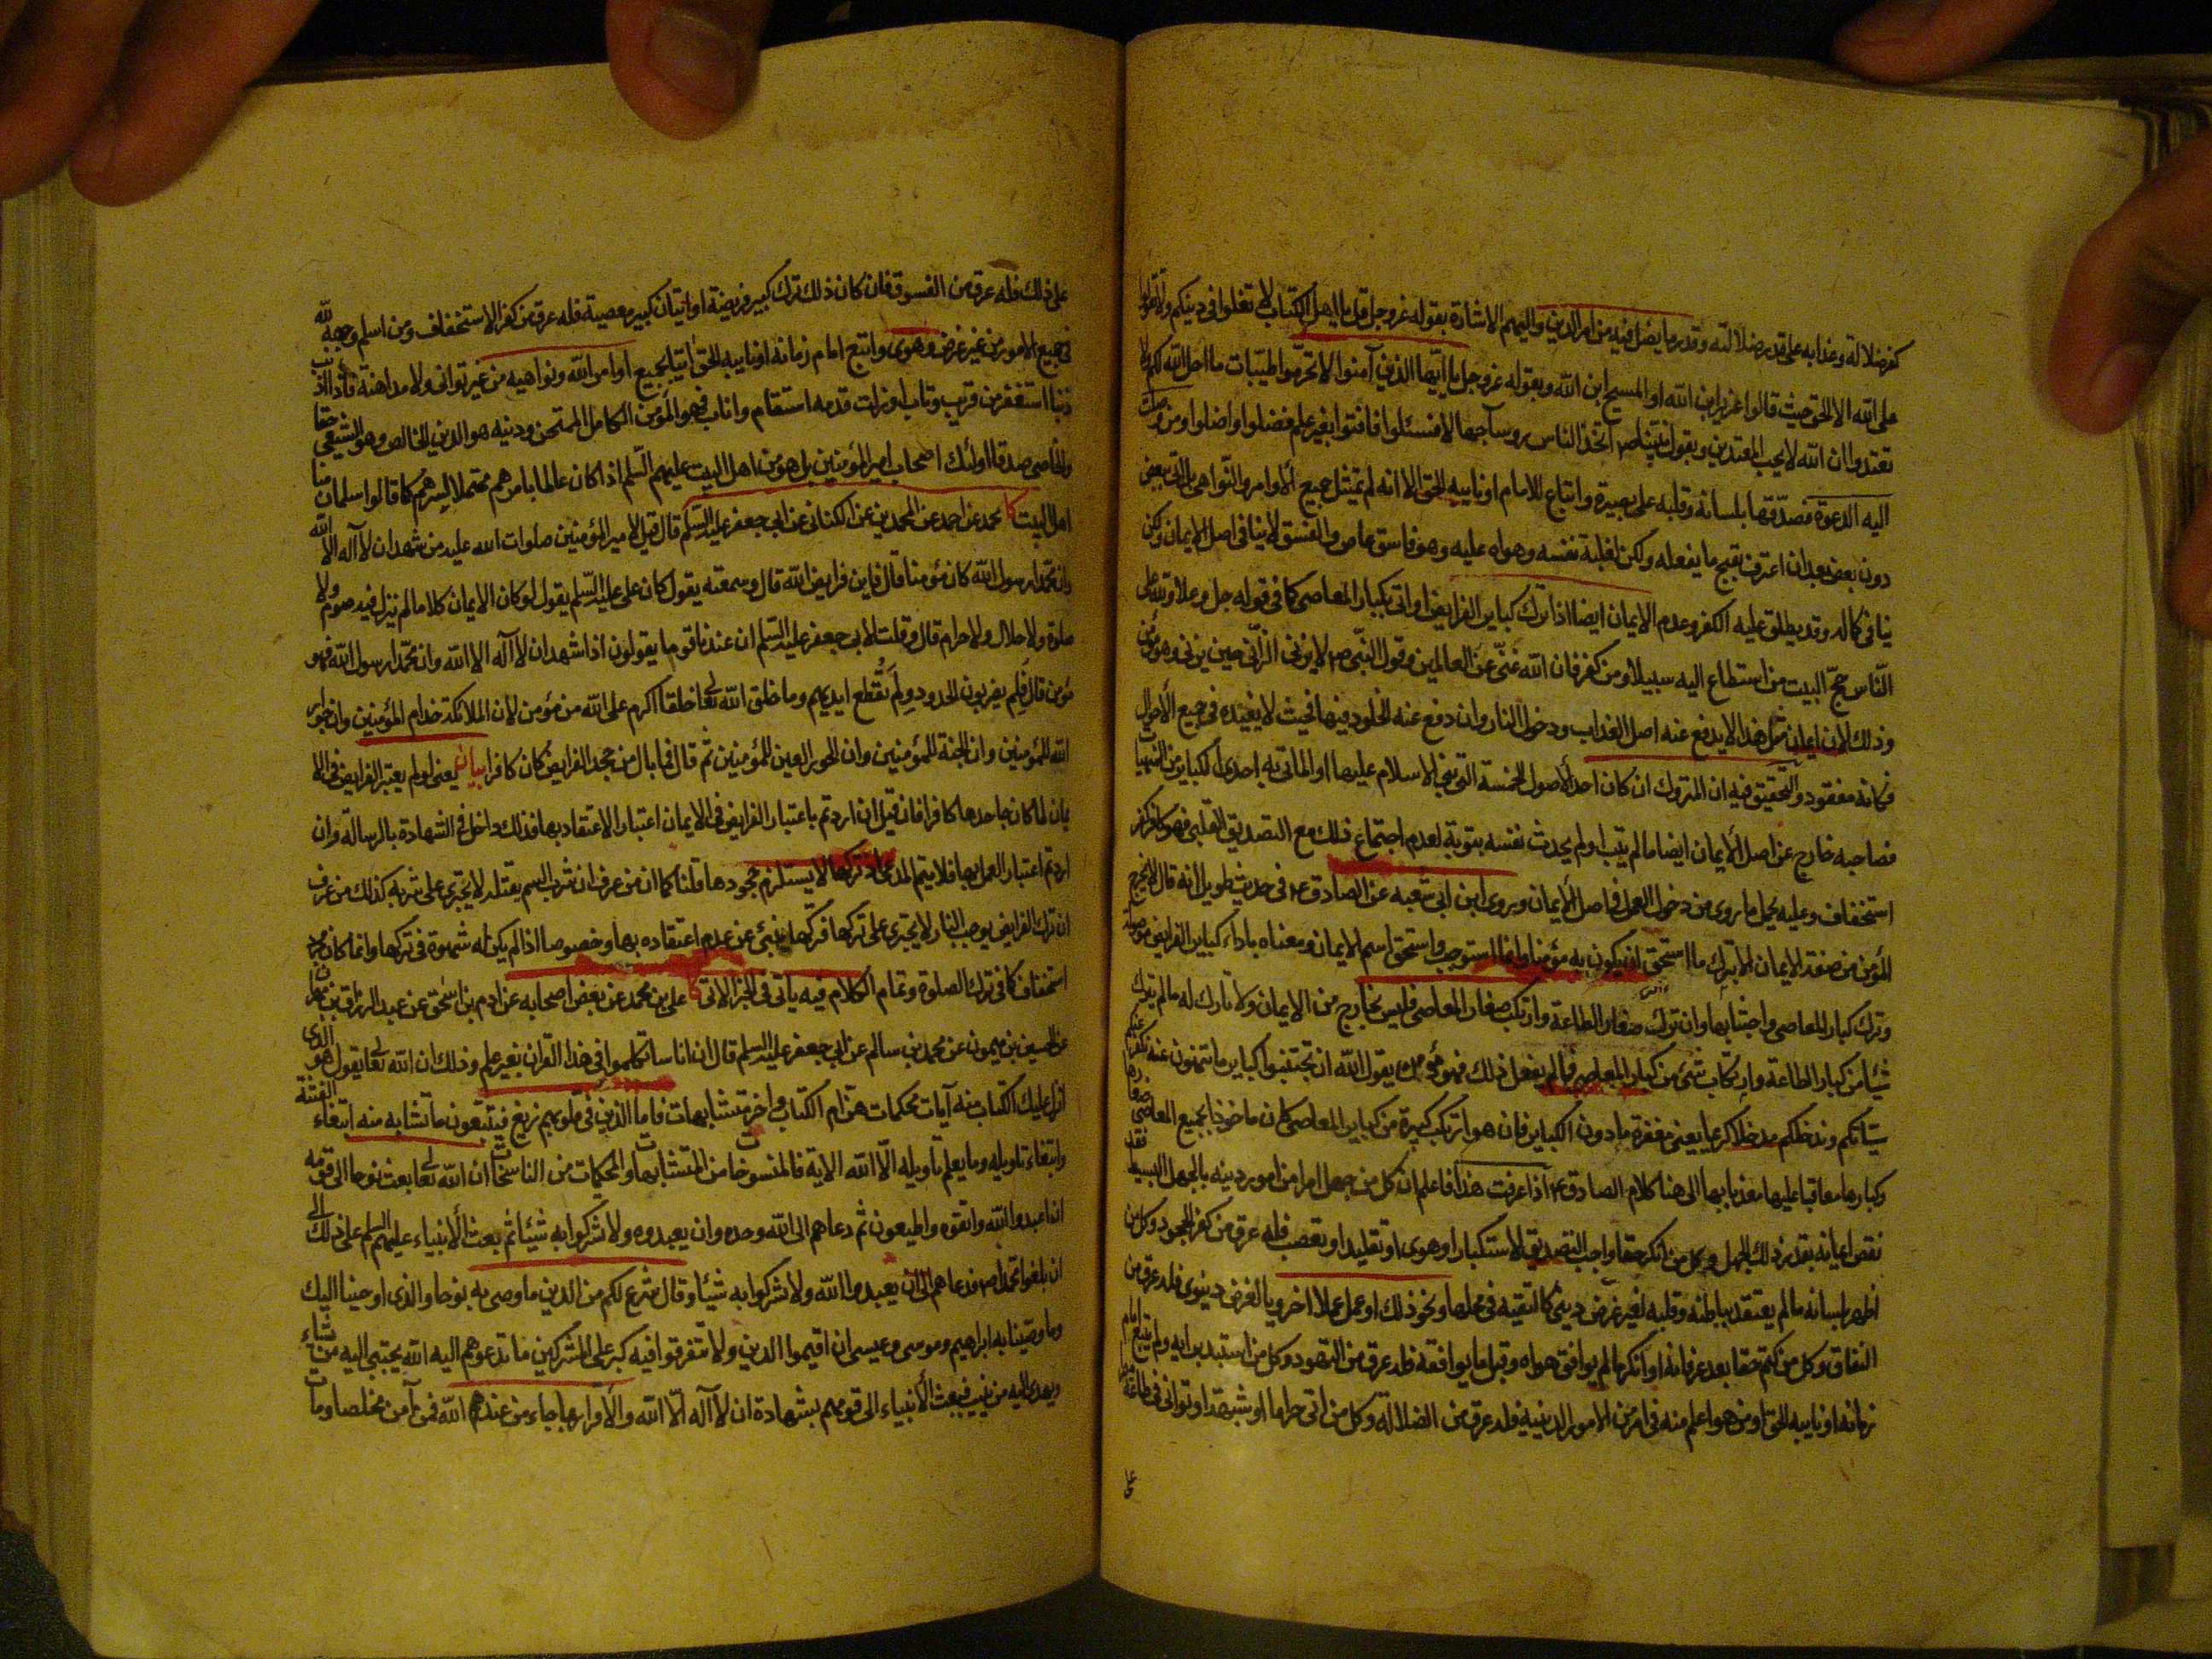 كفر ضلالة وعذابه على قدر ضلالته وقدر ما يضل فيه من امر الدين واليهم الاشارة بقوله عز وجل قل يا اهل الكتاب لا تغلوا في دينكم ولا تقولوا
على الله الا الحق حيث قالوا عزير ابن الله او المسيح ابن الله وبقوله عز وجل يا ايها الذين آمنوا لا تحرموا طيبات ما احل الله لكم ولا
تعتدوا ان الله لا يحب المعتدين وبقول نبينا ص اتخذ الناس روسآ جهالا فسئلوا فافتوا بغير علم فضلوا واضلوا ومن وصلت
اليه الدعوة فصدقها بلسانه وقلبه على بصيرة واتباع للامام او نايبه الحق الا انه لم يمتثل جميع الاوامر والنواهي بل اتى ببعض
دون بعض بعد ان اعترف بقبح ما يفعله ولكن لغلبة نفسه وهواه عليه وهو فاسق عاص والفسق لا ينافي اصل الايمان ولكن
ينافي كماله وقد يطلق عليه الكفر وعدم الايمان ايضا اذا ترك كباير الفرايض او اتى بكبار المعاصي كما في قوله جل وعلا ولله على
الناس حج البيت من استطاع اليه سبيلا ومن كفر فان الله غني عن العالمين وقول النبي ص لا يزني الزاني حين يزني وهو مؤمن
وذلك لان ايمان مثل هذا لا يدفع عنه اصل العذاب ودخول النار وان دفع عنه الخلود فيها فحيث لا يفيده في جميع الأحوال
فكانه مفقود والتحقيق فيه ان المتروك ان كان احد الاصول الخمسة التي بني الاسلام عليها او الماتي به احدى الكباير من المنهيات
فصاحبه خارج عن اصل الأيمان ايضا ما لم يتب او لم يحدث نفسه بتوبة لعدم اجتماع ذلك مع التصديق القلبي فهو كافر كفر
استخفاف وعليه يحمل ما روي من دخول العمل في اصل الأيمان وروى ابن ابي شعبه عن الصادق ع في حديث طويل انه قال لا يخرج
المؤمن من صفة الايمان الا بترك ما استحق ان يكون به مؤمنا وانما استوجب واستحق اسم الايمان ومعناه باداء كباير الفرايض موصولة
وترك كبار المعاصي واجتنابها وان ترك صغار الطاعة وارتكب صغار المعاصي فليس بخارج من الايمان ولا تارك له ما لم يترك
شيئا من كبار الطاعة وارتكاب شئ من كبار المعاصي فما لم يفعل ذلك فهو مؤمن يقول الله ان تجتنبوا كباير ما تنهون عنه نكفر عنكم
سيئاتكم وندخلكم مدخلا كريما يعني مغفرة ما دون الكباير فان هو ارتكب كبيرة من كباير المعاصي كان ماخوذا بجميع المعاصي صغارها
وكبارها معاقبا عليها معذبا بها الى هنا كلام الصادق ع اذا عرفت هذا فاعلم ان كل من جهل امرا من امور دينه بالجهل البسيط فقد
نقص ايمانه بقدر ذلك الجهل وكل من انكر حقا واجب التصديق لاستكبار او هوى او تقليد او تعصب فله عرق من كفر الجحود وكل من
اظهر بلسانه ما لم يعتقد بباطنه وقلبه لغير غرض ديني كالتقية في محلها ونحو ذلك او عمل عملا اخرويا لغرض دنيوي فله عرق من
النفاق وكل من كتم حقا بعد عرفانه او انكر ما لم يوافق هواه وقبل ما يوافقه فله عرق من التهود وكل من استبد برايه ولم يتبع امام
زمانه او نايبه الحق او من هو اعلم منه في امر من الامور الدينية فله عرق من الضلالة وكل من اتى حراما او شبهة او توانى في طاعة
على
على ذلك فله عرق من الفسوق فان كان ذلك ترك كبير فريضة او اتيان كبير معصية فله عرق من كفر الاستخفاف ومن اسلم وجهه لله
في جميع الامور من غير غرض وهوى واتبع امام زمانه او نايبه الحق آتيا بجميع اوامر الله ونواهيه من غير توانى ولا مداهنة فاذا اذنب
ذنبا استغفر من قريب وتاب او زلت قدمه استقام واناب فهو المؤمن الكامل الممتحن ودينه هو الدين الخالص وهو الشيعي حقا
والخاصي صدقا اولئك اصحاب امير المؤمنين بل هو من اهل البيت عليهم السلم اذا كان عالما بامرهم محتملا لسرهم كما قالوا سلمان منا
اهل البيت كا محمد عن احمد عن المحمدين عن الكناني عن ابي جعفر عليه السلم قال قيل لامير المؤمنين صلوات الله عليه من شهد ان لا آله الا الله
وان محمدا رسول الله كان مؤمنا قال فاين فرايض الله قال وسمعته يقول كان علي عليه السلم يقول لو كان الايمان كلاما لم ينزل فيه صوم ولا
صلوة ولا حلال ولا حرام قال وقلت لابي جعفر عليه السلم ان عندنا قوما يقولون اذا شهد ان لا آله الا الله وان محمدا رسول الله فهو
مؤمن قال فلم يضربون الحدود ولم تقطع ايديهم وما خلق الله تعالى خلقا اكرم على الله من مؤمن لان الملائكة خدام المؤمنين وان جوار
الله للمؤمنين وان الجنة للمؤمنين وان الحور العين للمؤمنين ثم قال فما بال من جحد الفرايض كان كافرا بيان يعني لو لم يعتبر الفرايض في الا
يمان لما كان جاحدها كافرا فان قيل ان اردتم باعتبار الفرايض في الايمان اعتبار الاعتقاد بها فذلك داخل في الشهادة بالرسالة وان
اردتم اعتبار العمل بها فلا يتم المدعى اذ تركها لا يستلزم جحودها قلنا كما ان من عرف ان شرب السم يقتله لا يجتري على شربه كذلك من عرف
ان ترك الفرايض يوجب النار لا يجتري على تركها فتركها ينبئ عن عدم اعتقاده بها وخصوصا اذا لم يكن له شهوة في تركها وانما كان مجرد
استخفاف كما في ترك الصلوة وتمام الكلام فيه ياتي في الخبر الاتي كا علي بن محمد عن بعض اصحابه عن ادم بن اسحق عن عبد الرزاق بن مهران
عن الحسين بن ميمون عن محمد بن سالم عن ابي جعفر عليه السلم قال ان اناسا تكلموا في هذا القران بغير علم وذلك ان الله تعالى يقول هو الذي
انزل عليك الكتاب منه آيات محكمات هن ام الكتاب واخر متشابهات فاما الذين في قلوبهم زيغ فيتبعون ما تشابه منه ابتغاء الفتنة
وابتغاء تاويله وما يعلم تاويله الا الله الاية فالمنسوخات من المتشابهات والمحكمات من الناسخات ان الله تعالى بعث نوحا الى قومه
ان اعبدوا الله واتقوه واطيعون ثم دعاهم الى الله وحده وان يعبدوه ولا شركوا به شيئا ثم بعث الانبياء عليهم السلم على ذلك الى
ان بلغوا محمدا ص فدعاهم الى ان يعبدوا الله ولا شركوا به شيئا وقال شرع لكم من الدين ما وصى به نوحا والذي اوحينا اليك
وما وصينا به ابراهيم وموسى وعيسى ان اقيموا الدين ولا تتفرقوا فيه كبر على المشركين ما تدعوهم اليه الله يجتبي اليه من يشاء
ويهدي اليه من ينيب فبعث الانبياء الى قومهم بشهادة ان لا آله الا الله والاقرار بما جاء من عند الله فمن آمن مخلصا ومات